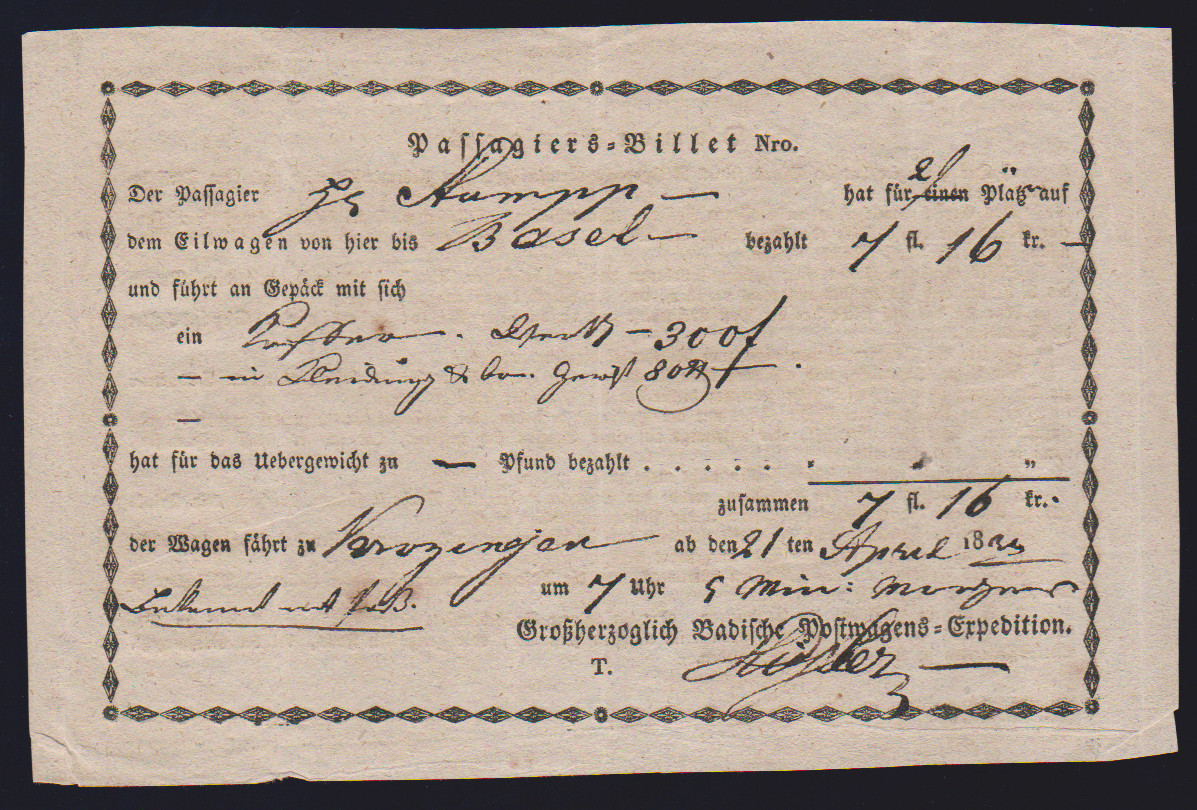 Passagiers-Billet Nro.
Der Passagier Hr Stumpp — hat für 2 einen Plätze auf
dem Eilwagen von hier bis Basel — bezahlt 7 fl. 16 kr. —
und führt an Gepäck mit sich
ein Koffer. Werth — 300 f
— in Kleidung & 80 ℔
—
hat für das Uebergewicht zu — Pfund bezahlt . . . . . . „ „
zusammen 7 fl. 16 kr.
der Wagen fährt zu Krozingen ab den 21 ten April 18
um 7 Uhr 5 Min: Morgens
Bekannt mit
Großherzoglich Badische Postwagens-Expedition.
T.